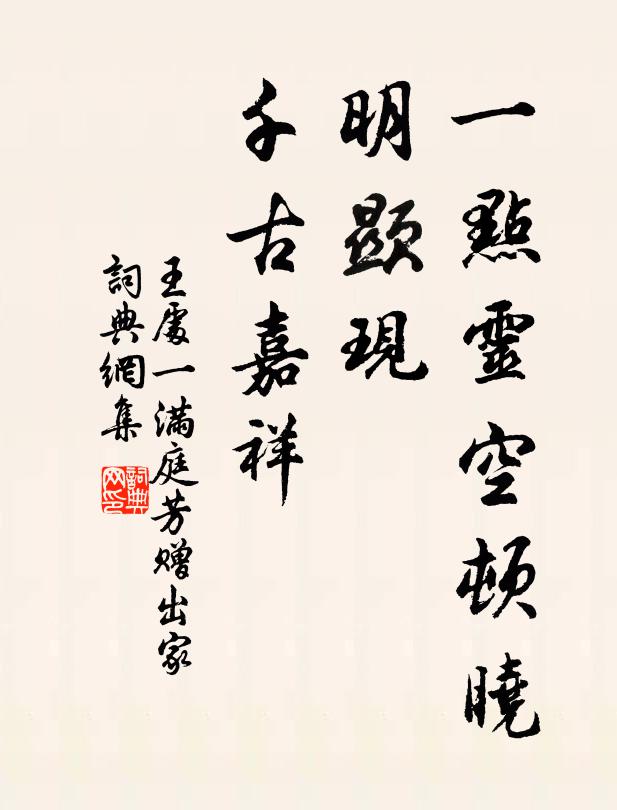 一點靈空頓曉
明顯現
千古嘉祥
王處一滿庭芳贈出家
詞典網集
詞典网印